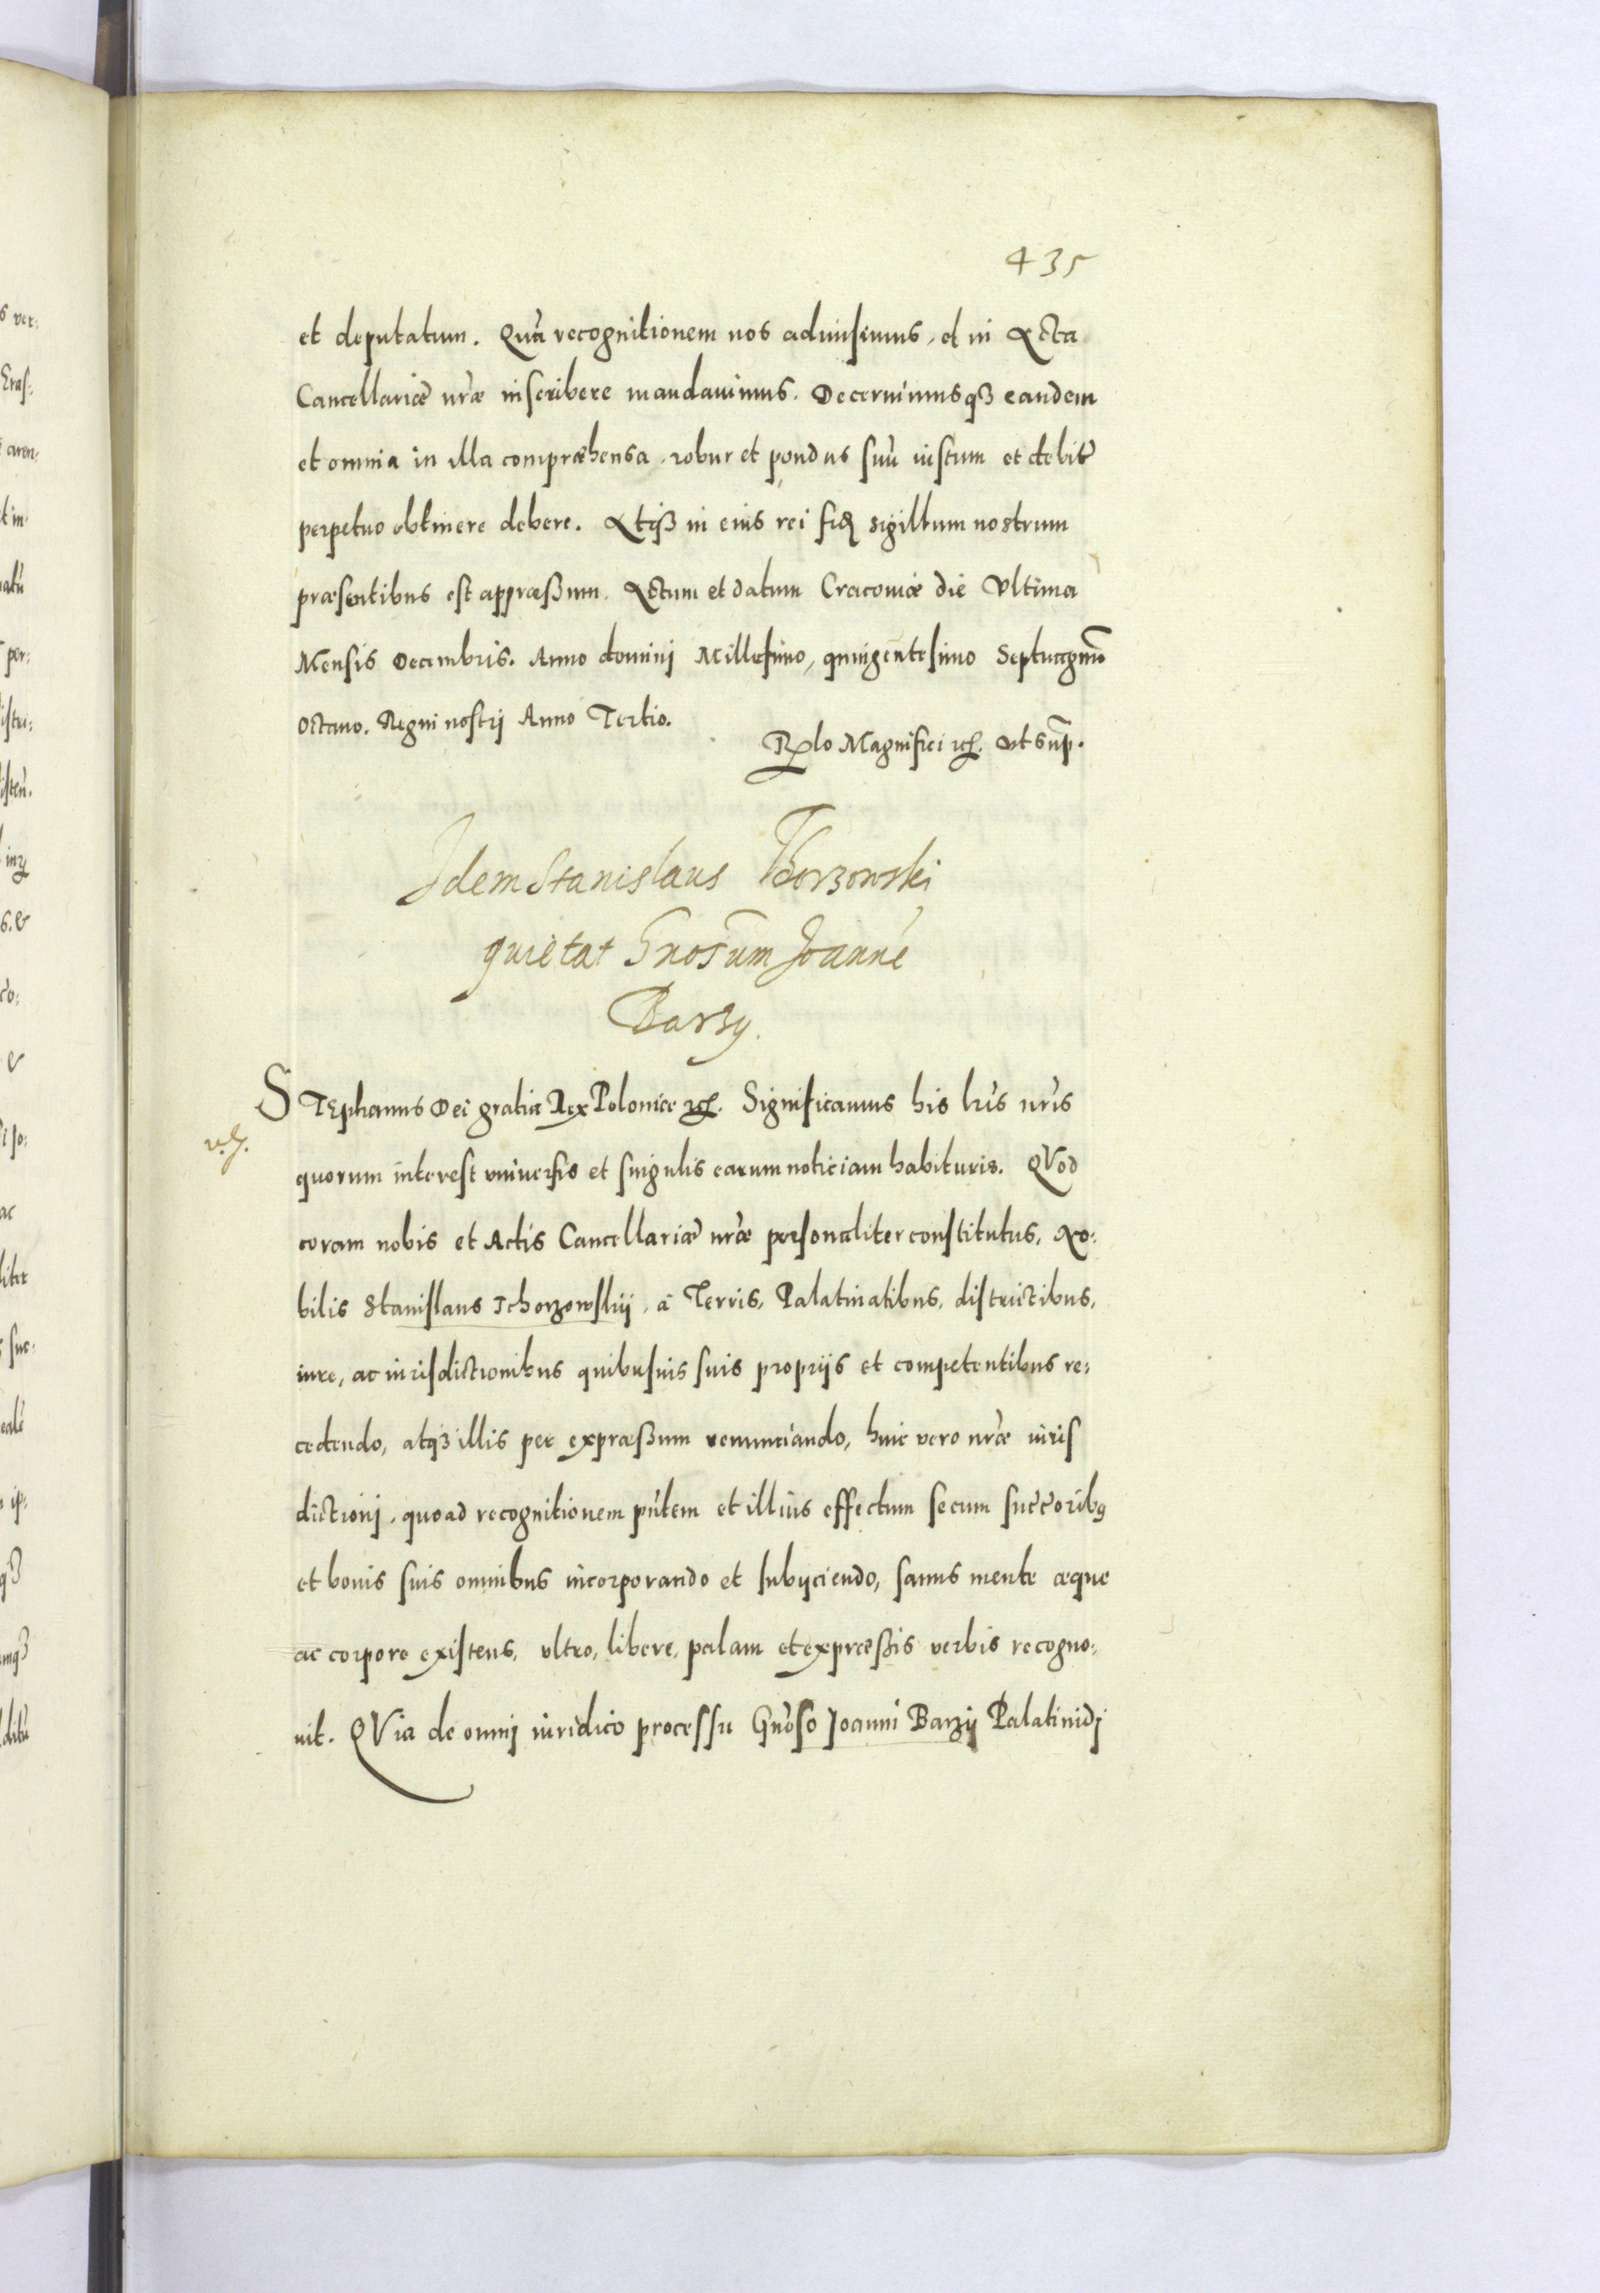 435
et deputatum. Quā recognitionem nos admisimus, et in Acta
Cancellariæ nr̄æ inscribere mandauimus. Decernimusqʒ eandem
et omnia in illa compræhensa, robur et pondus suū iustum et debitū
perpetuo obtinere debere. Atqʒ in eius rei fidē sigillum nostrum
præsentibus est appræßum. Actum et datum Cracouiæ die Vltima
Mensis Decembris. Anno domini Millesimo, quingentesimo Septuagmō
Octauo. Regni nostrj Anno Tertio.
Rlo Magnifici etc. vt sup̄.
Idem Stanislaus Thorzowski
quietat Gnosūm Joannē
Barzy.
STEphanus Dei gratia Rex Poloniæ etc. Significamus his lr̄is nr̄is
quorum interest vniuersis et singulis earum noticiam habituris. QVod
coram nobis et Actis Cancellariæ nr̄æ personaliter constitutus, No:
bilis Stanislaus Tchorzowskij, á Terris, Palatinatibus, districtibus,
iure, ac iurisdictionibus quibusuis suis proprijs et competentibus re:
cedendo, atqʒ illis per expræßum renunciando, huic vero nr̄æ iuris
dictionj, quoad recognitionem pn̄tem et illius effectum secum succ̄oribꝫ
et bonis suis omnibus incorporando et subijciendo, sanus mente æque
ac corpore existens, vltro, libere, palam et expræßis verbis recogno:
uit. QVia de omnj iuridico processu Gn̄oso Joanni Barzij Palatinidj